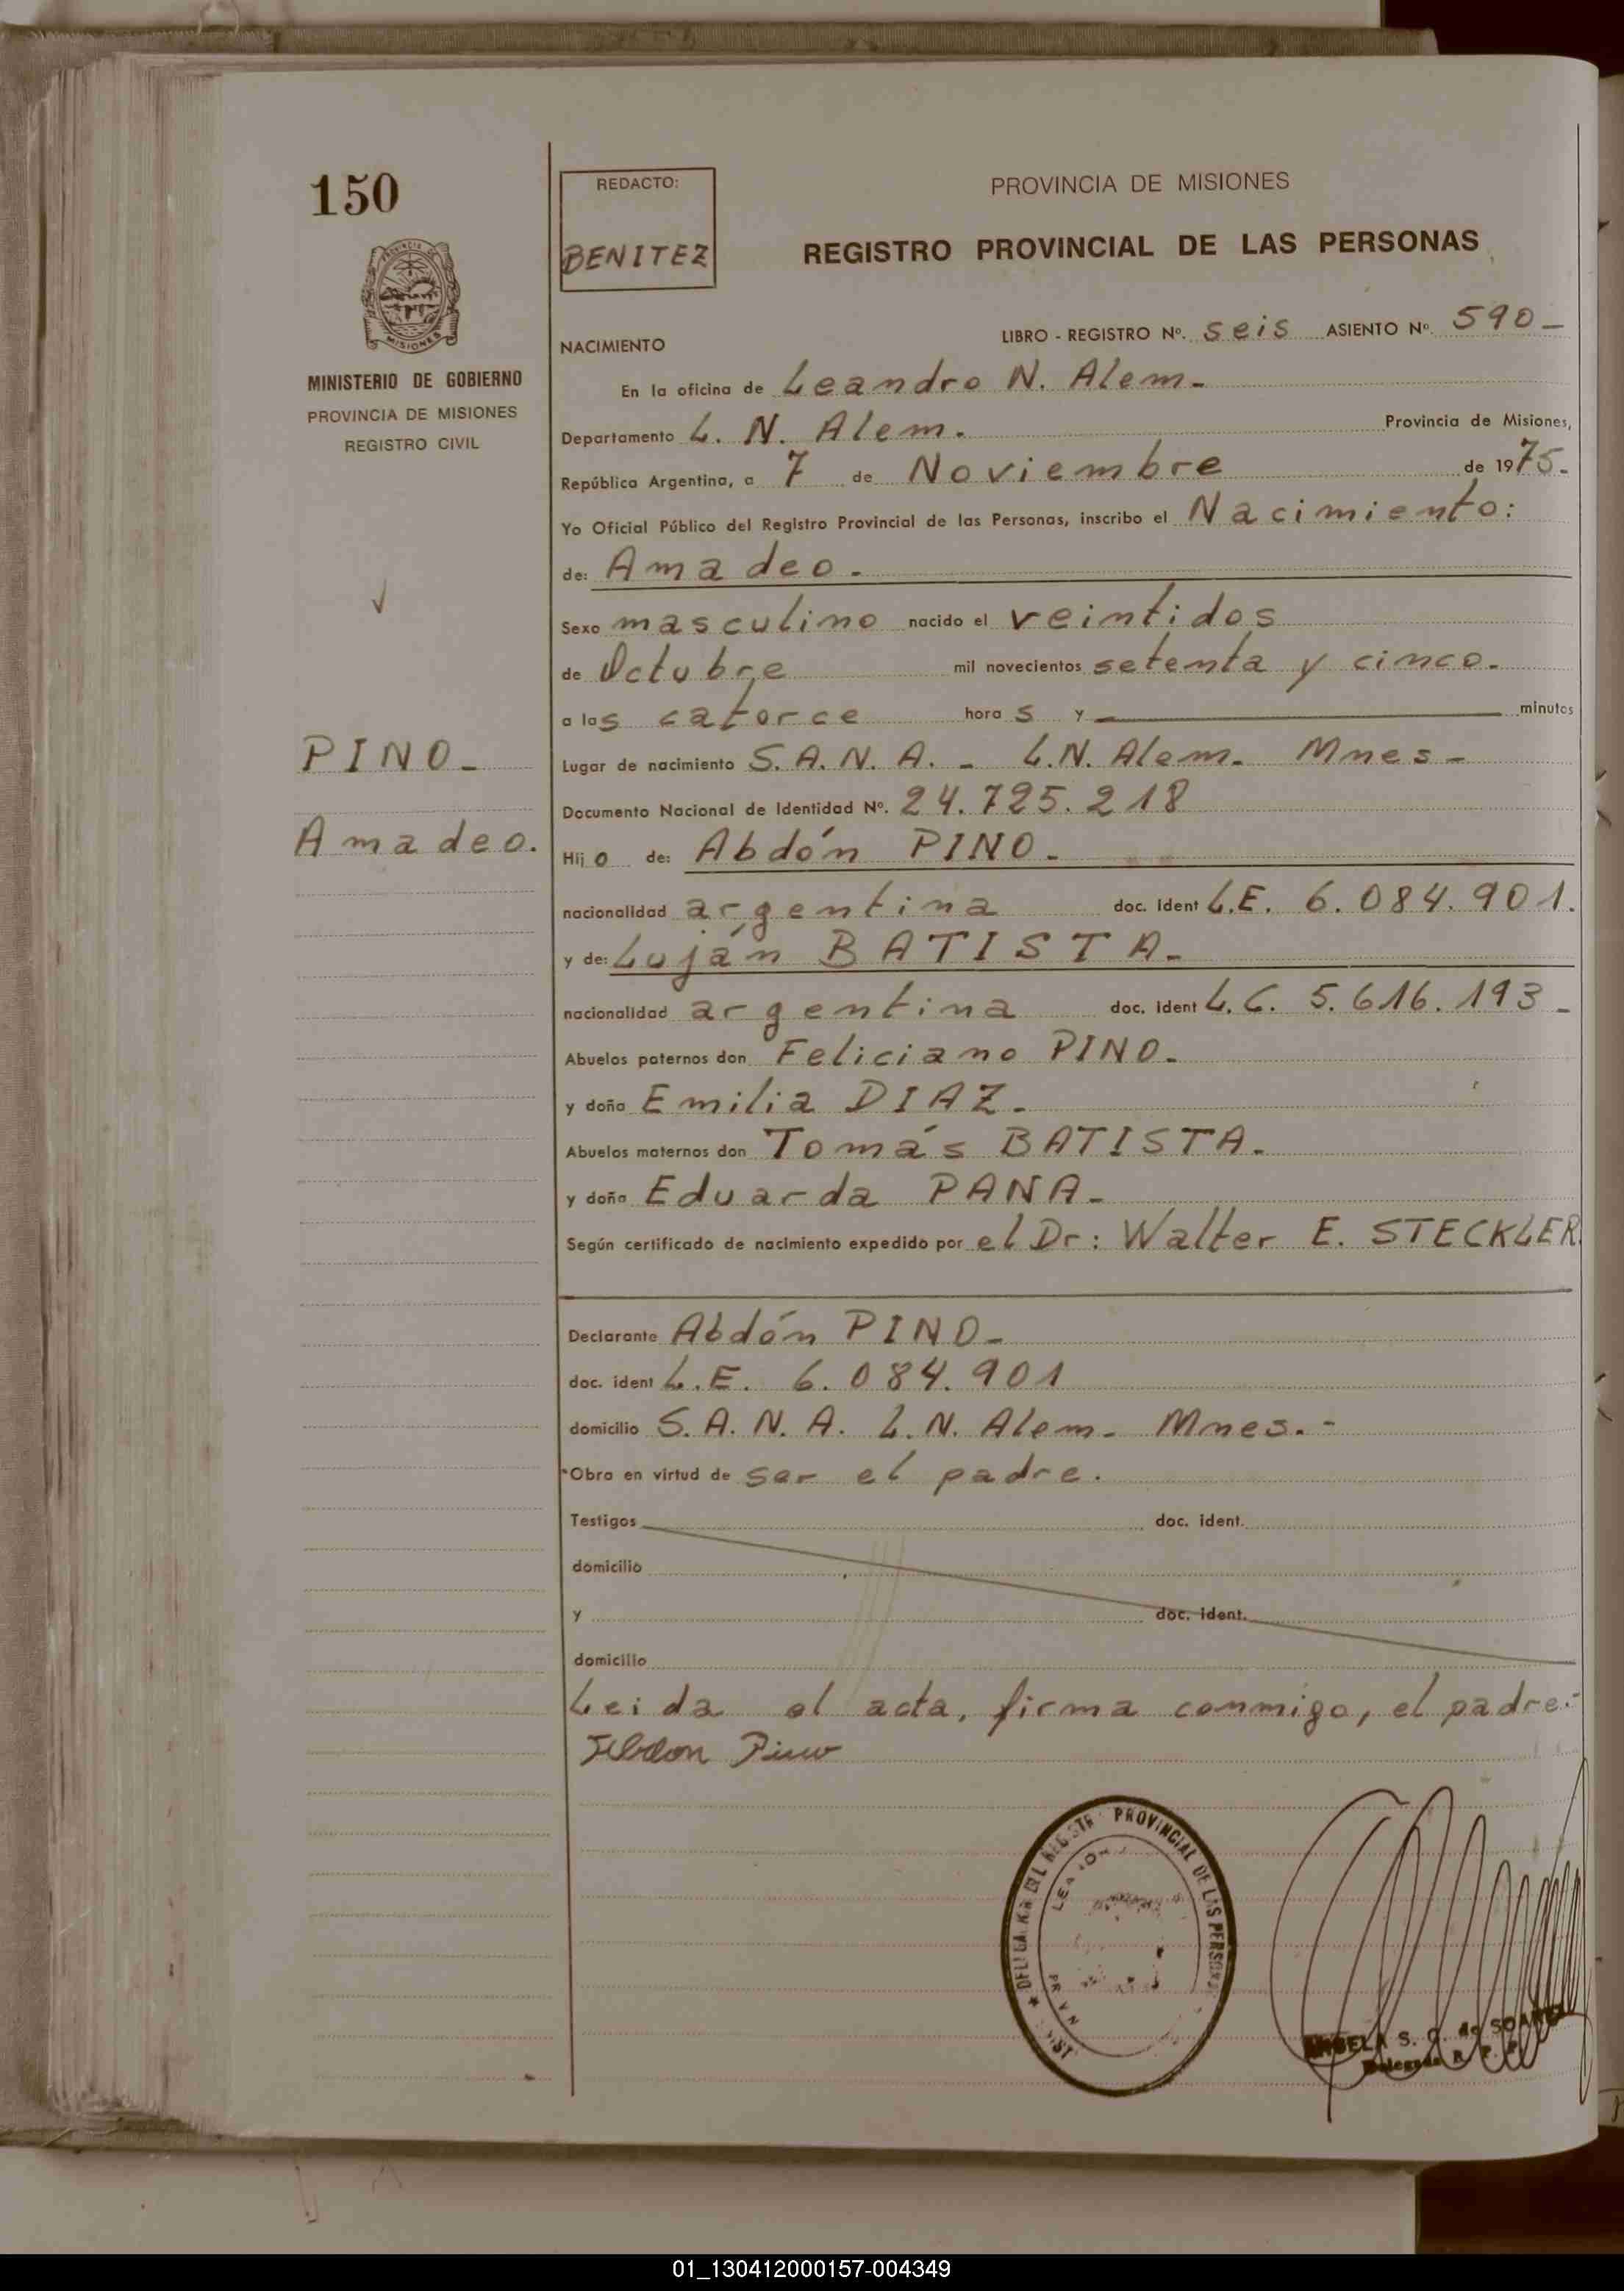 150
MISIONES
MINISTERIO DE GOBIERNO
PROVINCIA DE MISIONES
REGISTRO CIVIL
PINO-
Amadeo.
REDACTO:
BENITEZ
PROVINCIA DE MISIONES
REGISTRO PROVINCIAL DE LAS PERSONAS
NACIMIENTO LIBRO - REGISTRO Nº. seis ASIENTO Nº. 590-
En la oficina de Leandro N. Alem-
Departamento L. N. Alem. Provincia de Misiones,
República Argentina, a 7 de Noviembre de 1975-
Yo Oficial Público del Registro Provincial de las Personas, inscribo el Nacimiento:
de: Amadeo.
Sexo masculino nacido el veintidos
de Octubre mil novecientos setenta y cinco-
a las catorce horas y minutos
Lugar de nacimiento S. A. N. A. - L.N. Alem- Mnes-
Documento Nacional de Identidad Nº. 24.725.218
Hijo de: Abdón PINO-
nacionalidad argentina doc. ident L.E. 6.084.901.
y de: Luján BATISTA-
nacionalidad argentina doc. ident L.C. 5.616.193-
Abuelos paternos don Feliciano PINO-
y doña Emilia DIAZ-
Abuelos maternos don Tomás BATISTA-
y doña Eduarda PANA-
Según certificado de nacimiento expedido por el Dr: Walter E. STECKLER.
Declarante Abdón PINO-
doc. ident L.E. 6.084.901
domicilio S. A. N. A. L.N. Alem- Mnes.-
Obra en virtud de ser el padre.
Testigos doc. ident.
domicilio
y doc. ident.
domicilio
Leida el acta, firma conmigo, el padre.-
Abdon Pino
PROVINCIAL DE LAS
ANGELA S. de SOAREZ
Delegada R. P. P.
01_130412000157-004349